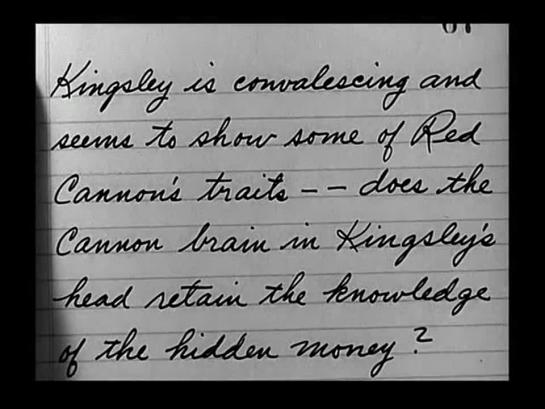 Kingsley is convalescing and
seems to show some of Red
Cannon's traits -- does the
Cannon brain in Kingsley's
head retain the knowledge
of the hidden money?